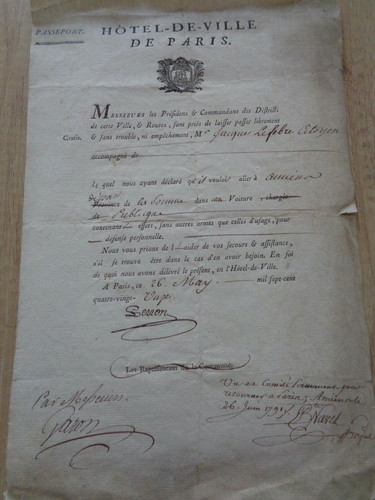 PASSEPORT.
HÔTEL-DE-VILLE
DE PARIS.
MESSIEURS les Présidens & Commandans des Districts
de cette Ville, & Routes, sont priés de laisser passer librement
& sans trouble, ni empêchement, Mr Jacques Lefebre Citoyen
accompagné de
Lequel nous ayant déclaré qu'il vouloit aller à Amiens
Province de la Somme dans une Voiture chargée
de Publique
contenant effets, sans autres armes que celles d'usage, pour
défense personnelle.
Nous vous prions de l'aider de vos secours & assistance,
s'il se trouve être dans le cas d'en avoir besoin. En foi
de quoi nous avons délivré le présent, en l'Hôtel-de-Ville.
A Paris, ce 26 May mil sept cent
quatre-vingt-
Les Représentans de la Commune.
Par Messieurs
Vu au Comité permanent pour
retourner à Paris
26 Juin 1791